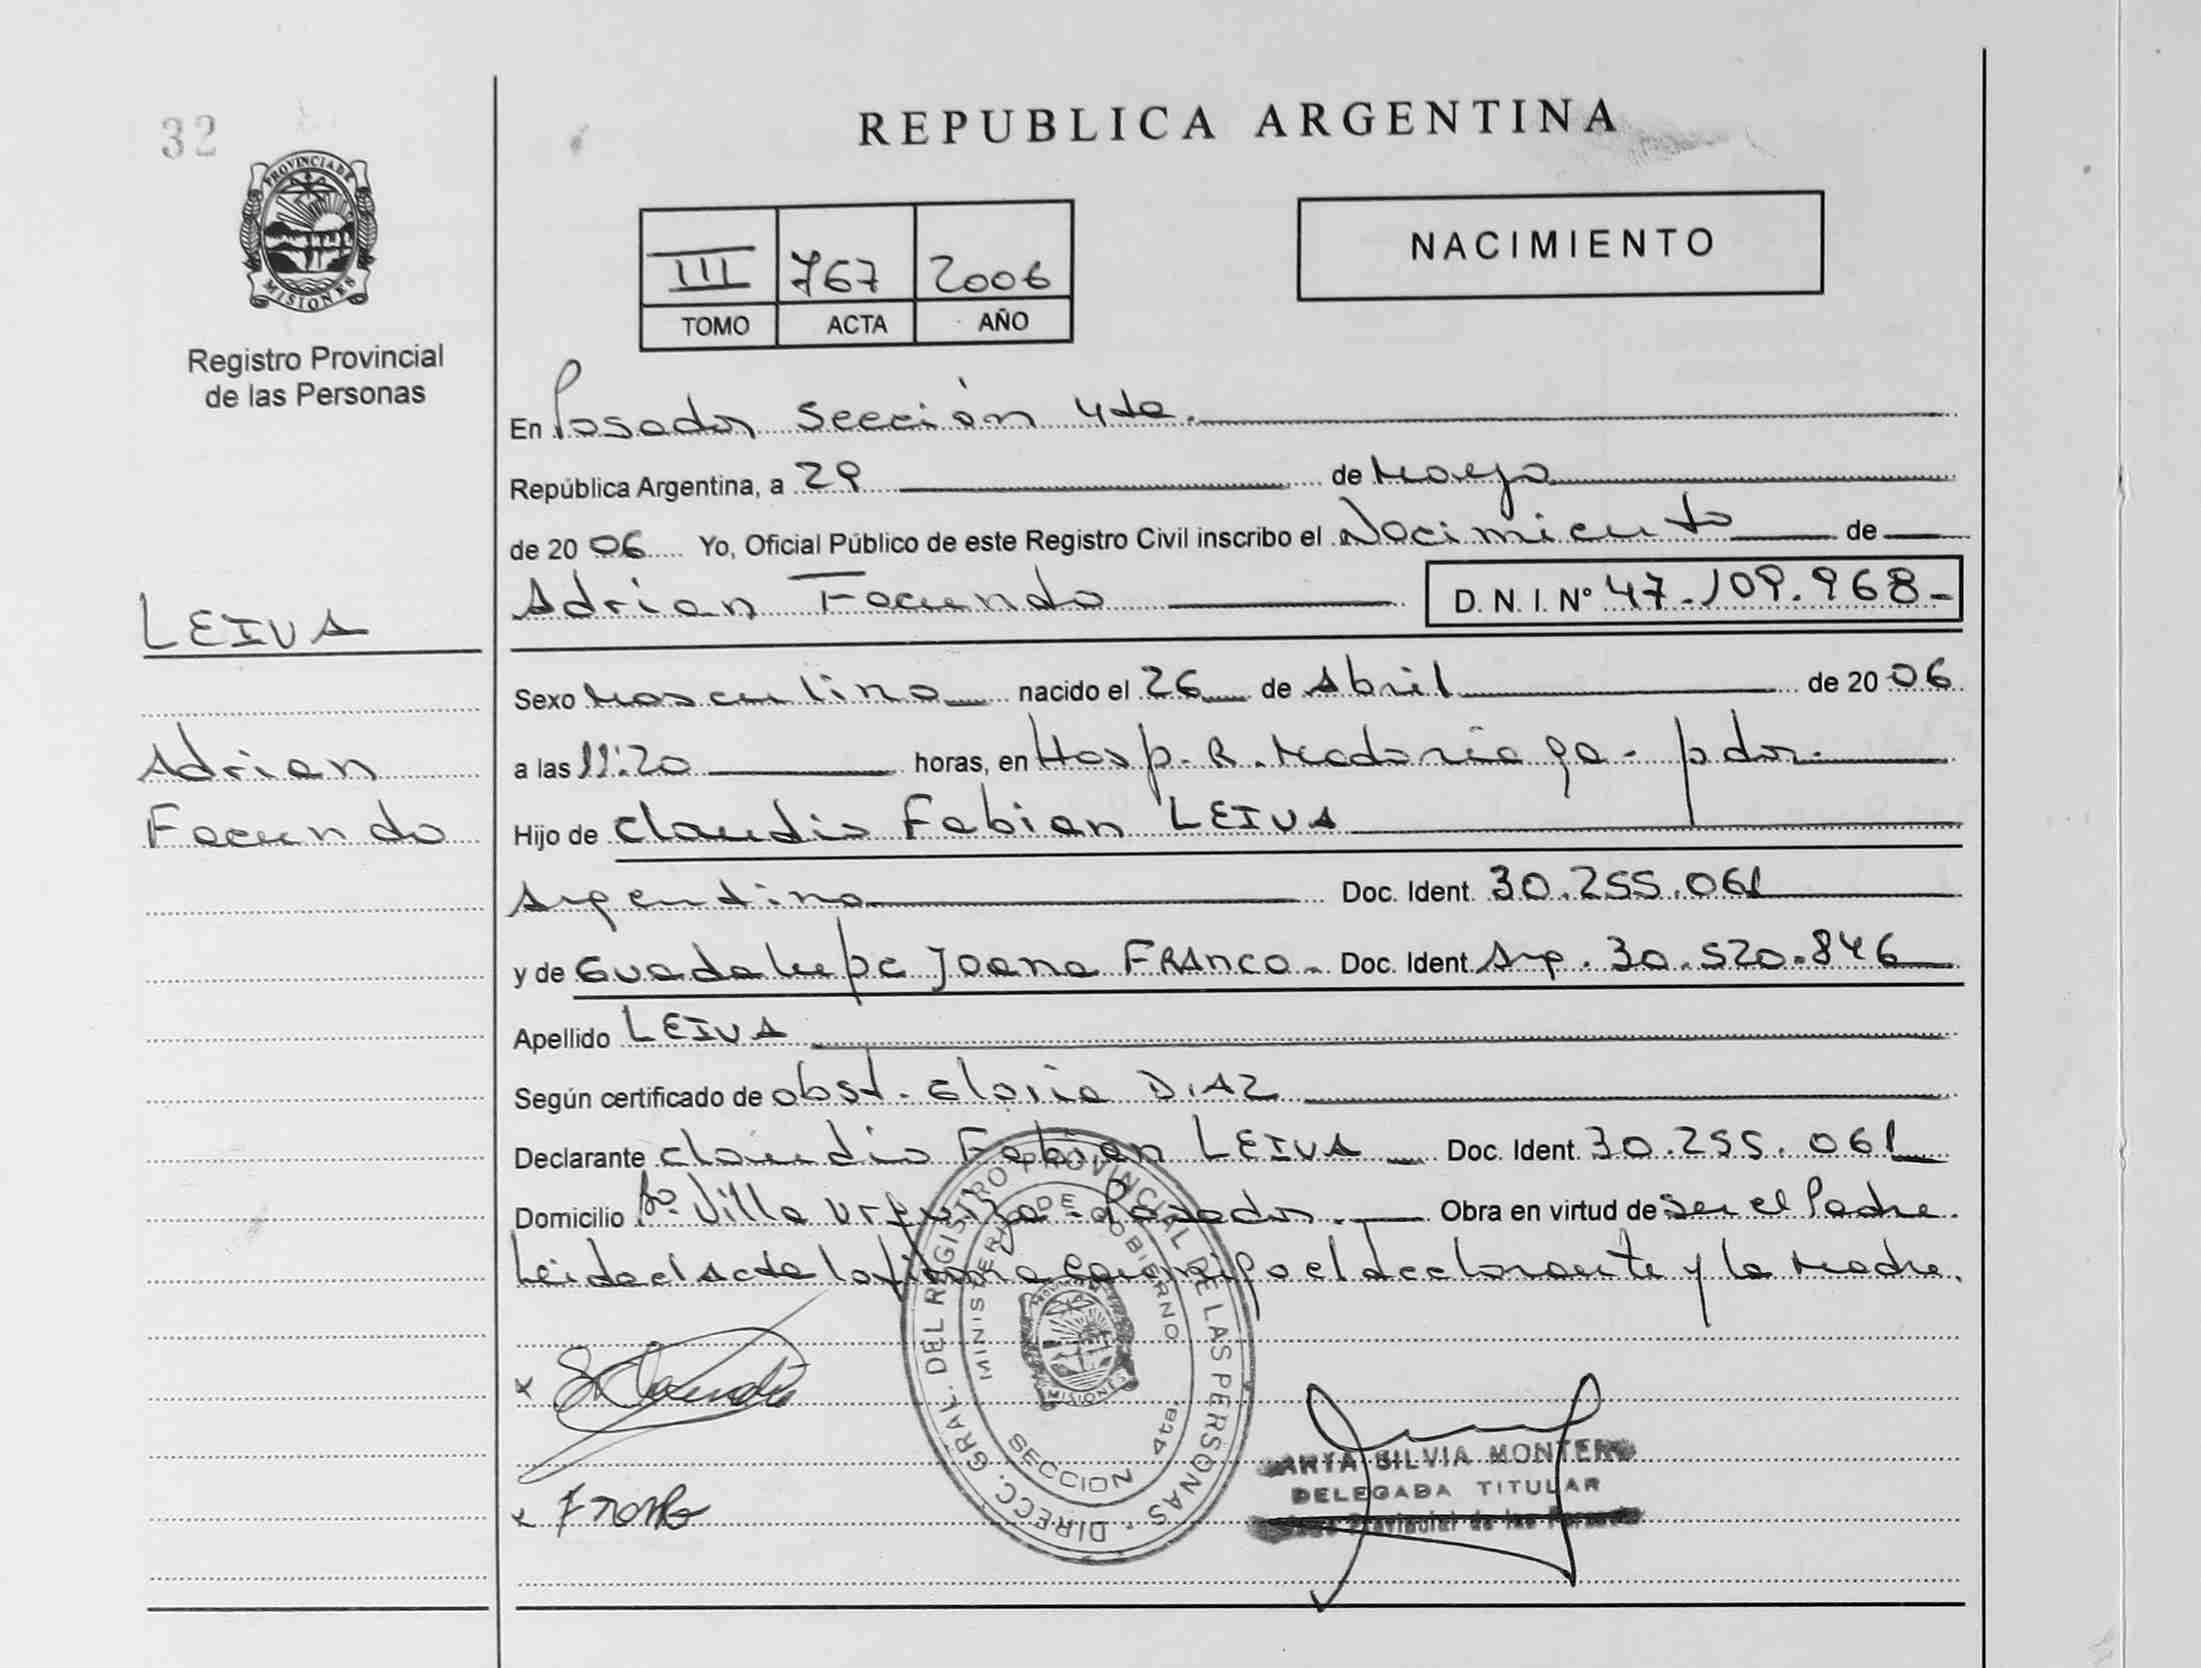 32
REPUBLICA ARGENTINA
PROVINCIA DE
MISIONES
Registro Provincial
de las Personas
III 767 2006
TOMO ACTA AÑO
NACIMIENTO
En Posadas Sección 4ta.
República Argentina, a 29 de Mayo
de 20 06 Yo, Oficial Público de este Registro Civil inscribo el Nacimiento de
Adrian Facundo D. N. I. Nº 47.109.968-
LEIVA
Adrian
Facundo
Sexo Masculino nacido el 26 de Abril de 20 06
a las 11:20 horas, en Hosp. R. Madariaga - pdas.
Hijo de Claudio Fabian LEIVA
Argentino Doc. Ident. 30.255.061
y de Guadalupe Joana FRANCO - Doc. Ident. Arg. 30.520.846
Apellido LEIVA
Según certificado de obst. Gloria DIAZ
Declarante Claudio Fabian LEIVA Doc. Ident. 30.255.061
Domicilio Bº Villa Urquiza - Posadas. Obra en virtud de ser el Padre.
Leida el Acta la firma conmigo el declarante y la Madre.
DIRECC. GRAL. DEL REGISTRO PROVINCIAL DE LAS PERSONAS
MINISTERIO DE GOBIERNO
MISIONES
SECCION 4ta.
x Claudio
x Franco
SILVIA MONTERO
DELEGADA TITULAR
Provincial de las Personas